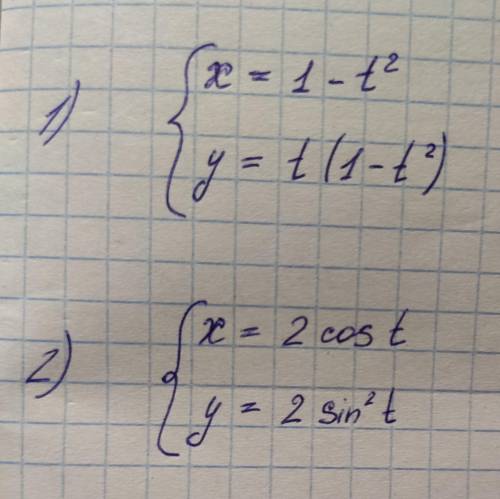 1) { x = 1 - t²
y = t(1 - t²)
2) { x = 2 cos t
y = 2 sin² t